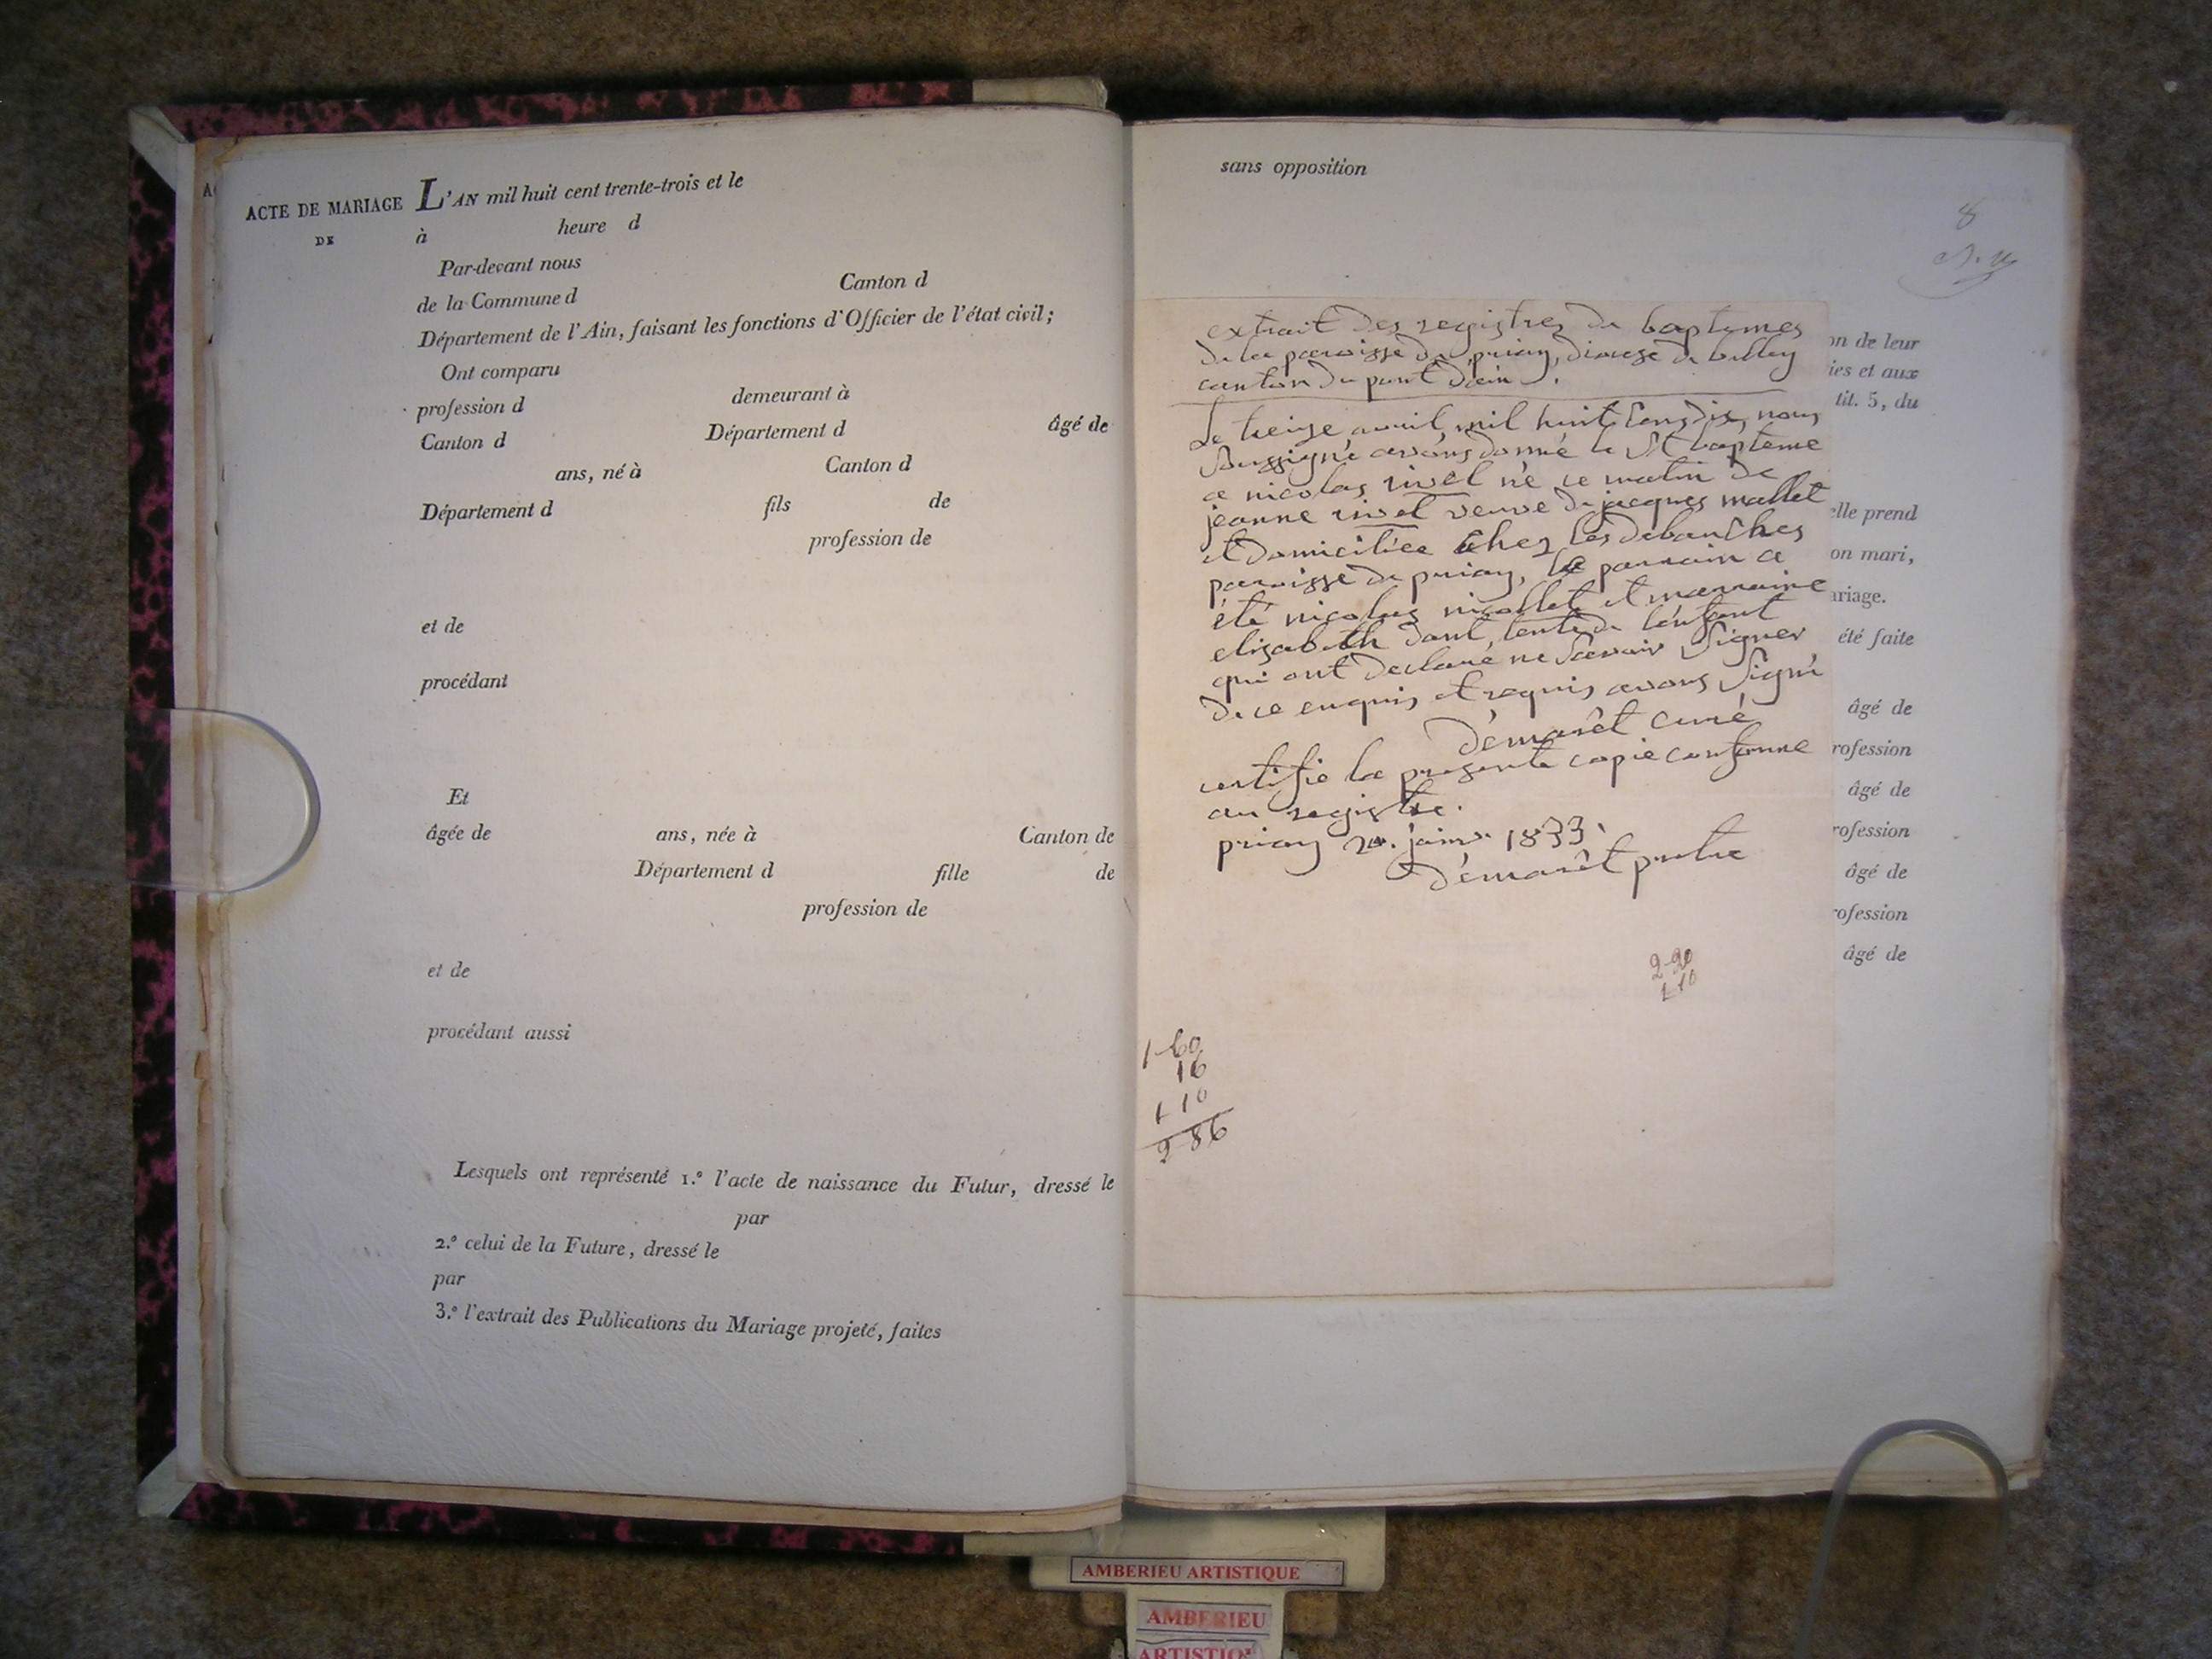 ACTE DE MARIAGE L'AN mil huit cent trente-trois et le
DE à heure d
Par-devant nous
de la Commune d Canton d
Département de l'Ain, faisant les fonctions d'Officier de l'état civil;
Ont comparu
profession d demeurant à
Canton d Département d âgé de
ans, né à Canton d
Département d fils de
profession de
et de
procédant
Et
âgée de ans, née à Canton de
Département d fille de
profession de
et de
procédant aussi
Lesquels ont représenté 1.º l'acte de naissance du Futur, dressé le
par
2.º celui de la Future, dressé le
par
3.º l'extrait des Publications du Mariage projeté, faites
sans opposition
8
extrait des registres de baptemes
de la paroisse de priay, diocese de belley
canton du pont dain.
Le treize avril mil huit cens dix, nous
Soussigné avons donné le St bapteme
a nicolas rivel né ce matin de
jeanne rivel veuve de jacques mallet
et domiciliée chez les debauches
paroisse de priay, le parrain a
été nicolas nicollet et marraine
elizabeth dont tente de l'enfant
qui ont declaré ne Savoir Signer
de ce enquis et requis avons Signé
démarêt curé
certifie la presente copie conforme
au registre.
priay 20. janv. 1833.
démarêt pretre
2-20
1 10
1-60
16
1 10
2 86
on de leur
ies et aux
tit. 5, du
elle prend
on mari,
ariage.
été faite
âgé de
rofession
âgé de
rofession
âgé de
rofession
âgé de
AMBERIEU ARTISTIQUE
AMBERIEU
ARTISTIQ